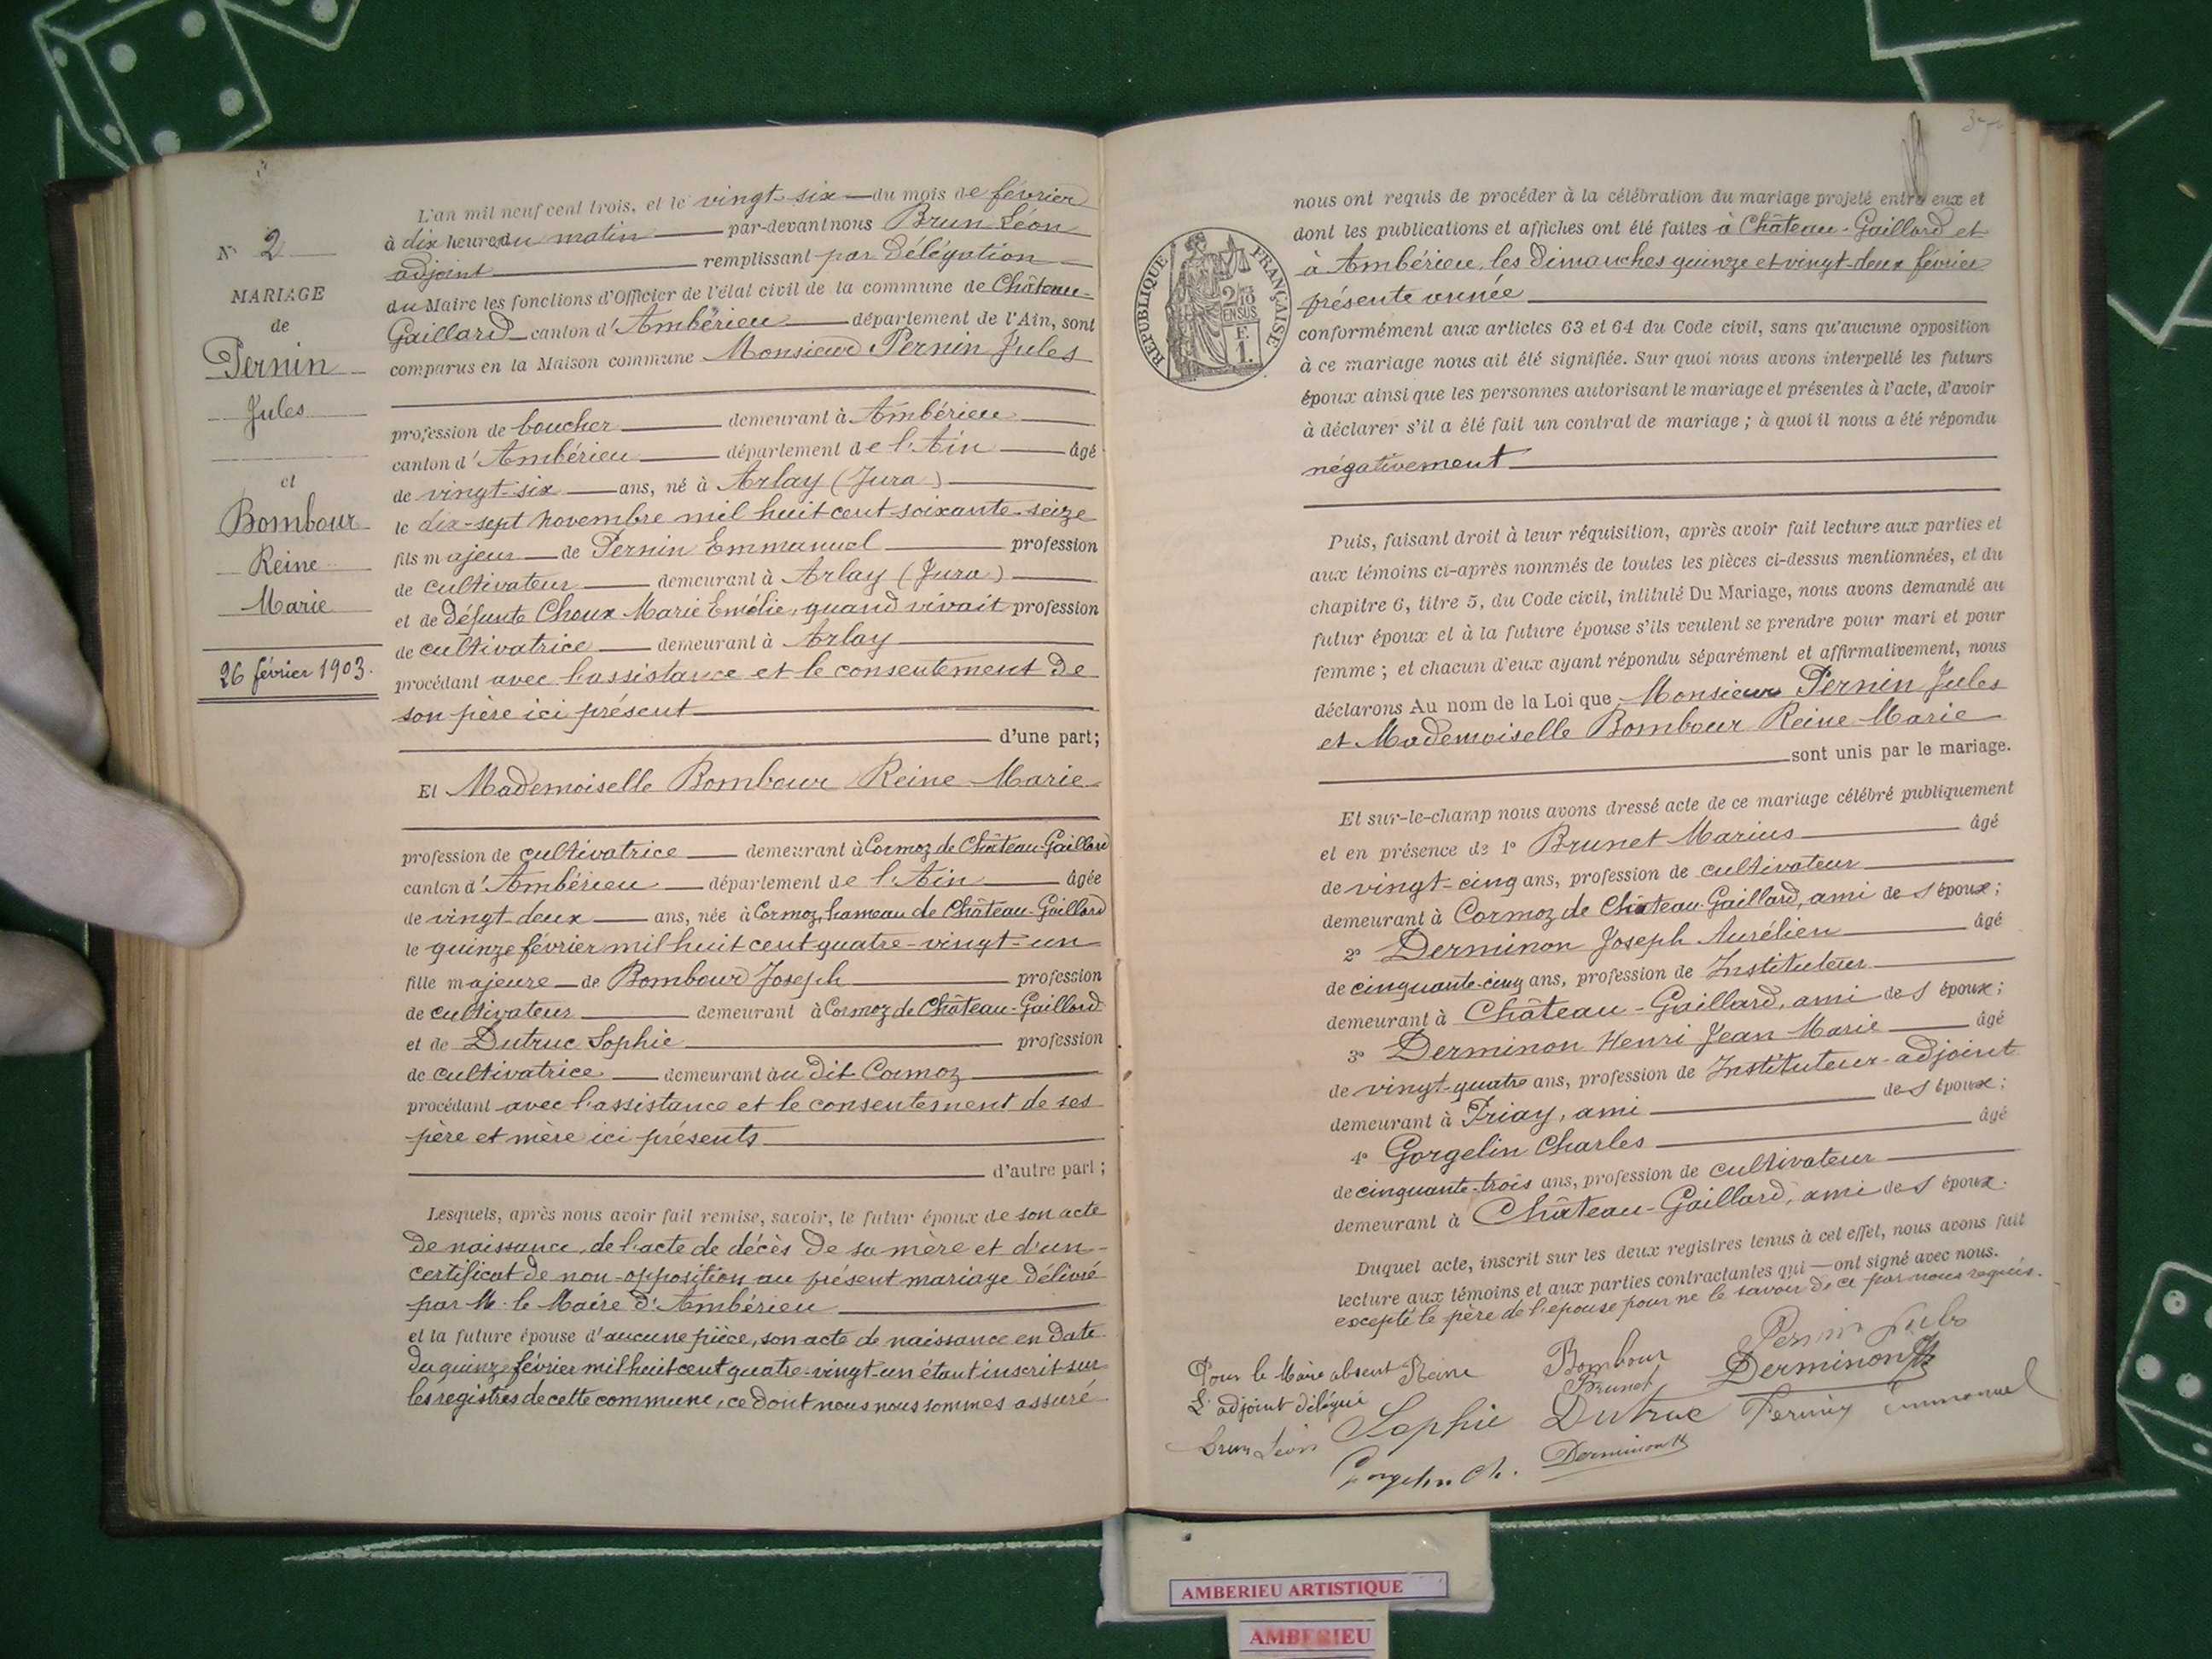 N° 2
MARIAGE
de
Pernin
Jules
et
Bombour
Reine
Marie
26 février 1903.
L'an mil neuf cent trois, et le vingt-six du mois de février
à dix heures du matin par-devant nous Brun Léon
adjoint remplissant par délégation
du Maire les fonctions d'Officier de l'état civil de la commune de Château-
Gaillard canton d'Ambérieu département de l'Ain, sont
comparus en la Maison commune Monsieur Pernin Jules
profession de boucher demeurant à Ambérieu
canton d'Ambérieu département de l'Ain âgé
de vingt-six ans, né à Arlay (Jura)
le dix-sept novembre mil huit cent soixante-seize
fils majeur de Pernin Emmanuel profession
de cultivateur demeurant à Arlay (Jura)
et de défunte Choux Marie Emélie, quand vivait profession
de cultivatrice demeurant à Arlay
procédant avec l'assistance et le consentement de
son père ici présent
d'une part;
Et Mademoiselle Bombour Reine Marie
profession de cultivatrice demeurant à Cormoz de Château-Gaillard
canton d'Ambérieu département de l'Ain âgée
de vingt-deux ans, née à Cormoz, hameau de Château-Gaillard
le quinze février mil huit cent quatre-vingt-un
fille majeure de Bombour Joseph profession
de cultivateur demeurant à Cormoz de Château-Gaillard
et de Dutruc Sophie profession
de cultivatrice demeurant au dit Cormoz
procédant avec l'assistance et le consentement de ses
père et mère ici présents
d'autre part;
Lesquels, après nous avoir fait remise, savoir, le futur époux de son acte
de naissance, de l'acte de décès de sa mère et d'un
certificat de non-opposition au présent mariage délivré
par M. le Maire d'Ambérieu
et la future épouse d'aucune pièce, son acte de naissance en date
du quinze février mil huit cent quatre-vingt-un étant inscrit sur
les registres de cette commune, ce dont nous nous sommes assuré
REPUBLIQUE FRANÇAISE
2/10 EN SUS
F.
1.
nous ont requis de procéder à la célébration du mariage projeté entre eux et
dont les publications et affiches ont été faites à Château-Gaillard et
à Ambérieu, les Dimanches quinze et vingt-deux février
présente année
conformément aux articles 63 et 64 du Code civil, sans qu'aucune opposition
à ce mariage nous ait été signifiée. Sur quoi nous avons interpellé les futurs
époux ainsi que les personnes autorisant le mariage et présentes à l'acte, d'avoir
à déclarer s'il a été fait un contrat de mariage; à quoi il nous a été répondu
négativement
Puis, faisant droit à leur réquisition, après avoir fait lecture aux parties et
aux témoins ci-après nommés de toutes les pièces ci-dessus mentionnées, et du
chapitre 6, titre 5, du Code civil, intitulé Du Mariage, nous avons demandé au
futur époux et à la future épouse s'ils veulent se prendre pour mari et pour
femme; et chacun d'eux ayant répondu séparément et affirmativement, nous
déclarons Au nom de la Loi que Monsieur Pernin Jules
et Mademoiselle Bombour Reine Marie
sont unis par le mariage.
Et sur-le-champ nous avons dressé acte de ce mariage célébré publiquement
et en présence de 1° Brunet Marius âgé
de vingt-cinq ans, profession de cultivateur
demeurant à Cormoz de Château-Gaillard, ami des époux;
2° Derminon Joseph Aurélien âgé
de cinquante-cinq ans, profession de Instituteur
demeurant à Château-Gaillard, ami des époux;
3° Derminon Henri Jean Marie âgé
de vingt-quatre ans, profession de Instituteur-adjoint
demeurant à Priay, ami des époux;
4° Gorgelin Charles âgé
de cinquante-trois ans, profession de cultivateur
demeurant à Château-Gaillard, ami des époux.
Duquel acte, inscrit sur les deux registres tenus à cet effet, nous avons fait
lecture aux témoins et aux parties contractantes qui ont signé avec nous.
excepté le père de l'épouse pour ne le savoir de ce par nous requis.
Pour le Maire absent Reine Bombour Pernin Jules
L'adjoint délégué Brunet Derminon
Brun Léon Sophie Dutruc Pernin Emmanuel
Gorgelin Ch. Derminon H
AMBERIEU ARTISTIQUE
AMBERIEU